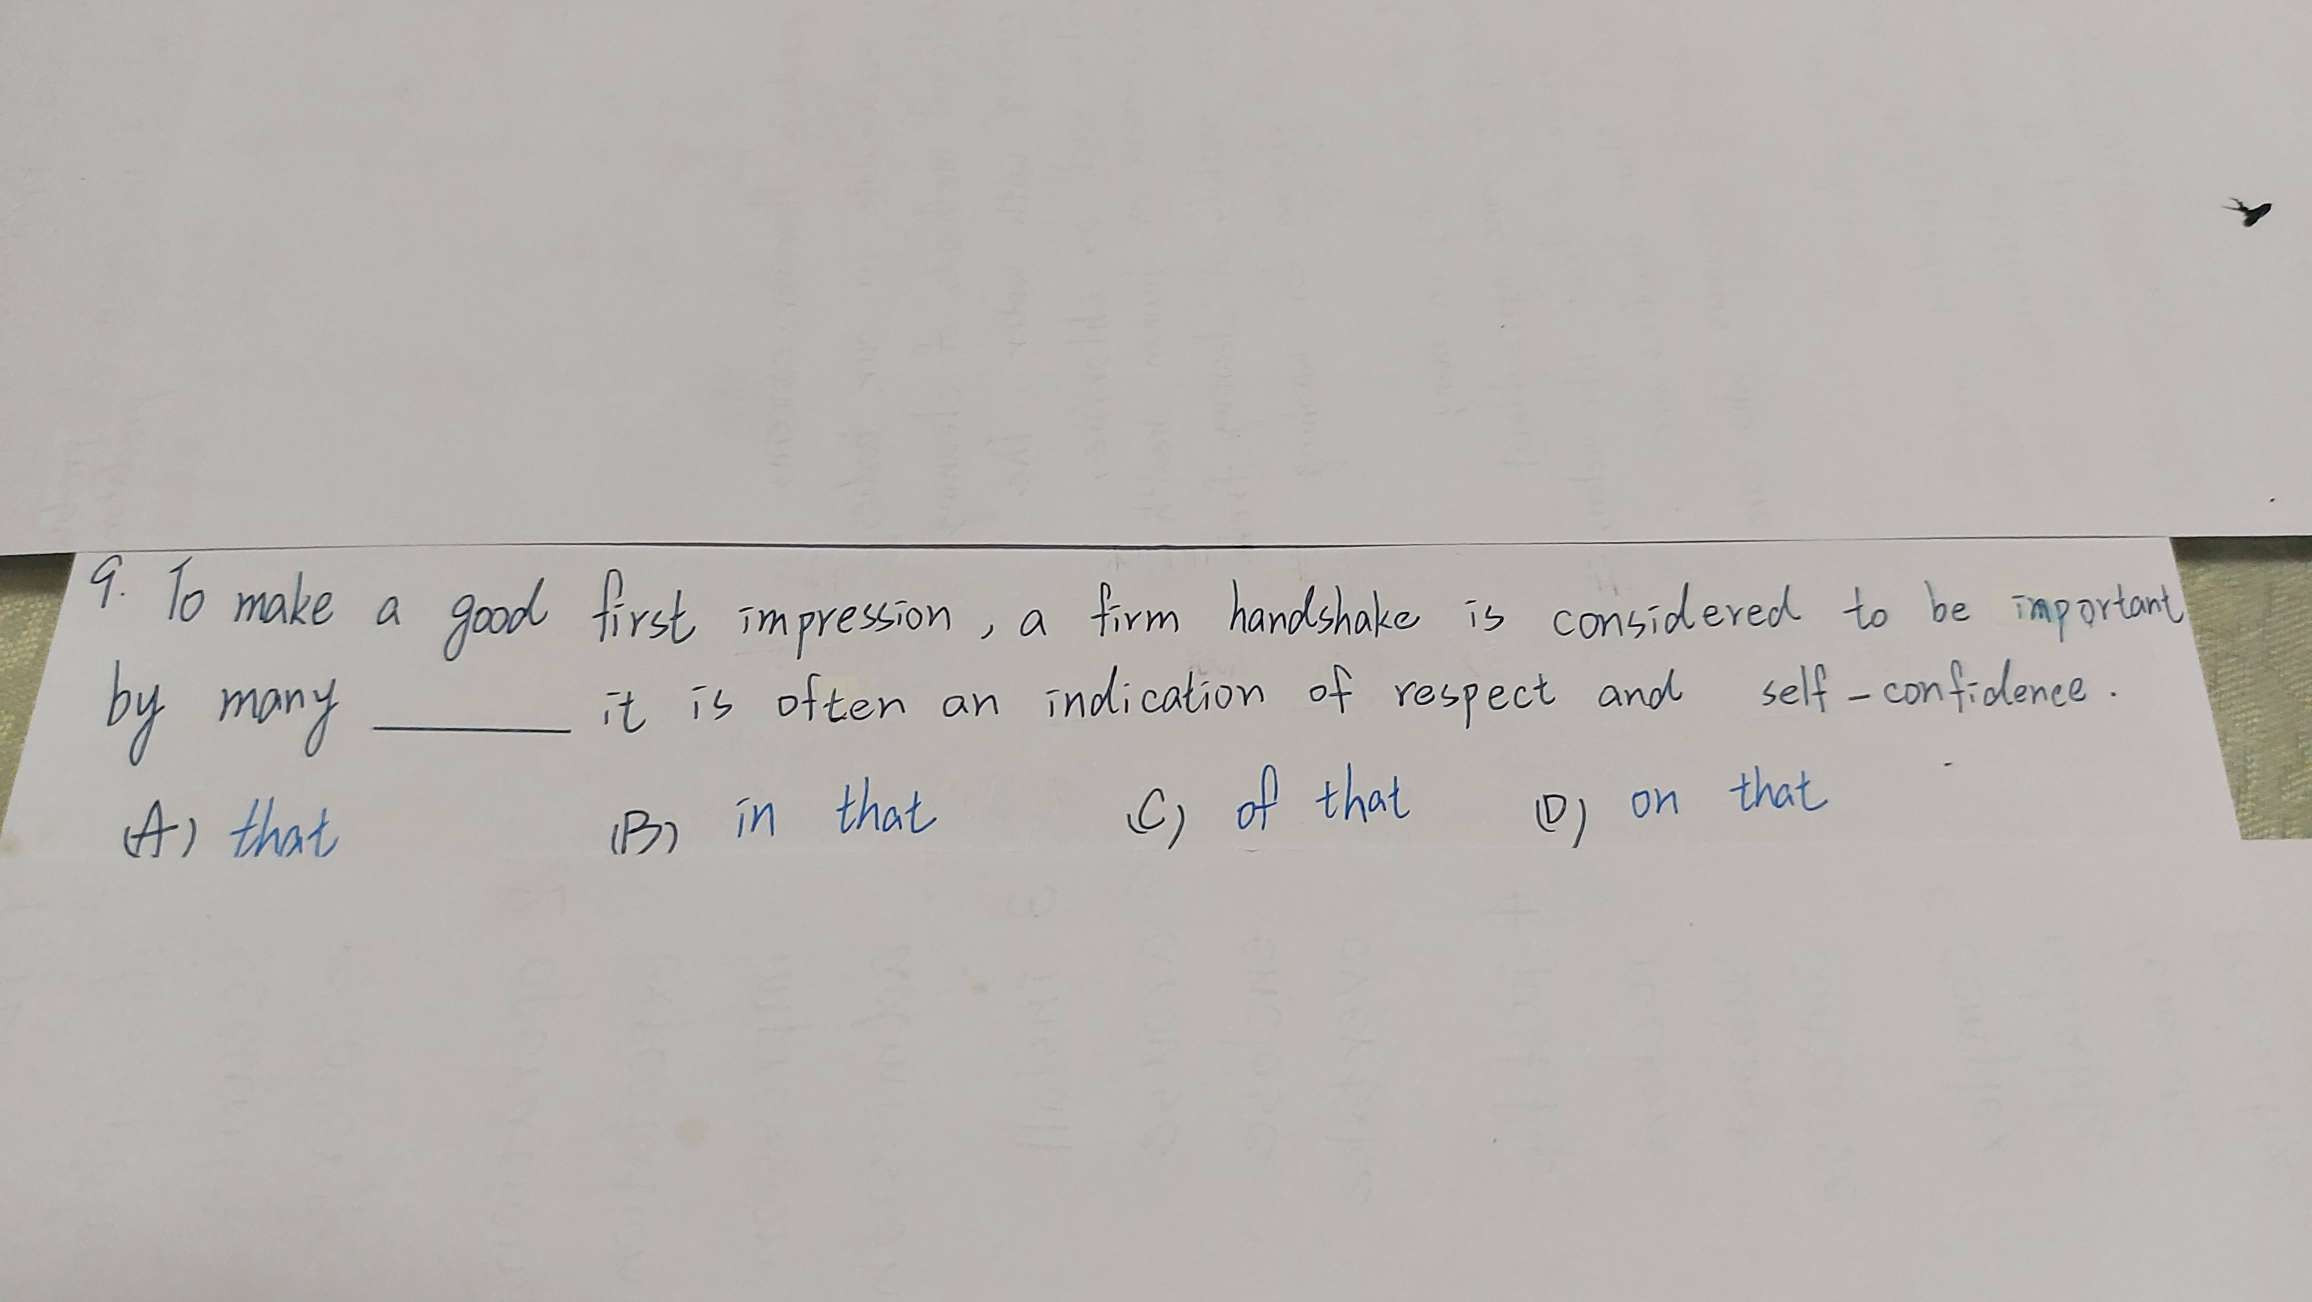 9. To make a good first impression, a firm handshake is considered to be important
by many ______ it is often an indication of respect and self-confidence.
(A) that (B) in that (C) of that (D) on that